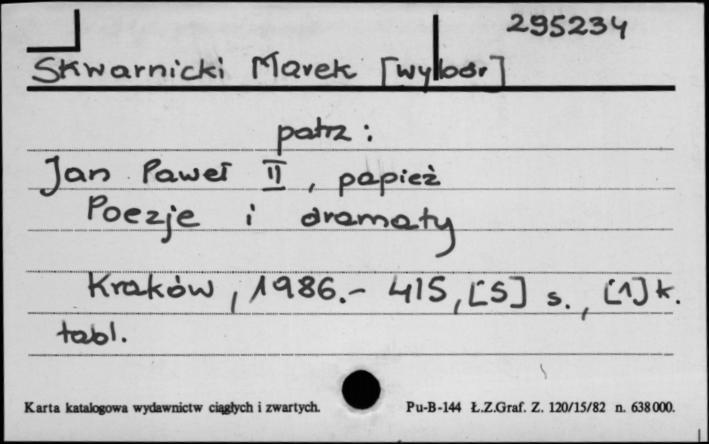 295234
Skwarnicki Marek [wybór]
patrz:
Jan Paweł II, papież
Poezje i dramaty
Kraków, 1986.- 415, [5] s., [1] k.
tabl.
Karta katalogowa wydawnictw ciągłych i zwartych. Pu-B-144 Ł.Z.Graf. Z. 120/15/82 n. 638000.